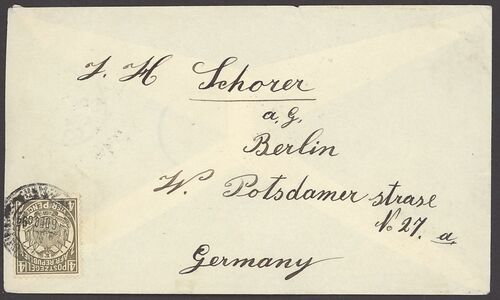 J. H Schorer
a, G,
Berlin
W. Potsdamer strase
No 27. a.
Germany
POSTZEGEL